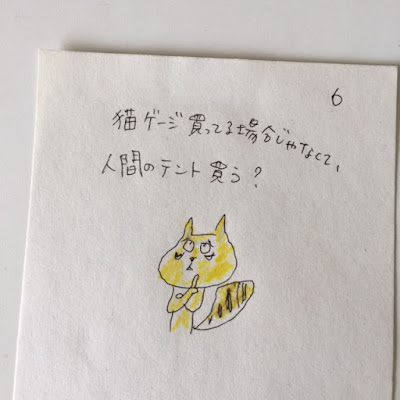 6
猫ゲージ買ってる場合じゃなくて、
人間のテント買う?